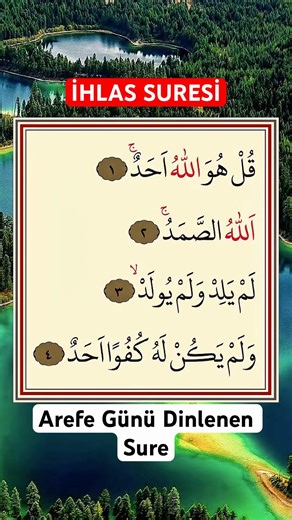 İHLAS SURESİ
قُلْ هُوَ اللّٰهُ اَحَدٌۚ ﴿١﴾
اَللّٰهُ الصَّمَدُۚ ﴿٢﴾
لَمْ يَلِدْ وَلَمْ يُولَدْۙ ﴿٣﴾
وَلَمْ يَكُنْ لَهُ كُفُوًا اَحَدٌ ﴿٤﴾
Arefe Günü Dinlenen
Sure